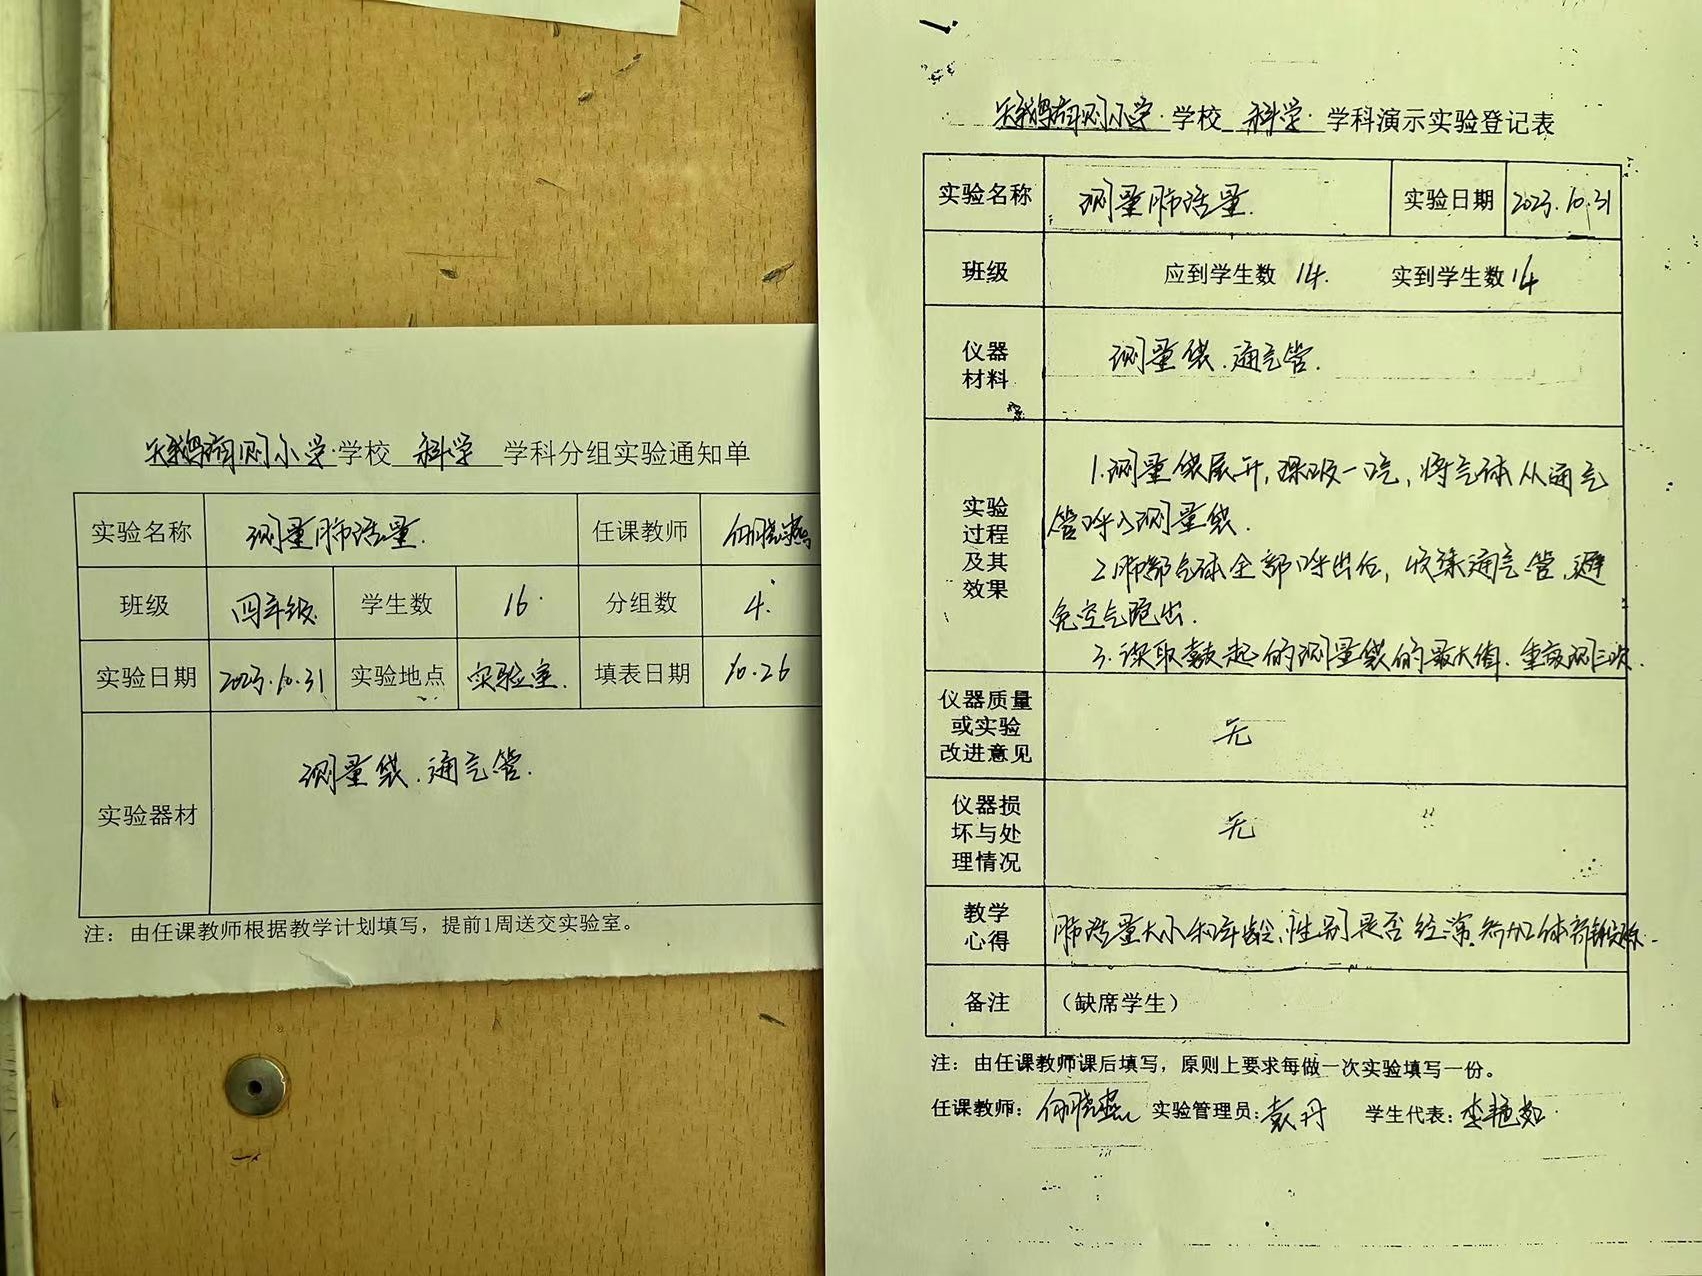 小学学校 科学 学科分组实验通知单
实验名称 测量肺活量. 任课教师 何晓燕
班级 四年级 学生数 16 分组数 4.
实验日期 2023.10.31 实验地点 实验室. 填表日期 10.26
实验器材 测量袋.通气管.
注：由任课教师根据教学计划填写，提前1周送交实验室。
小学学校 科学 学科演示实验登记表
实验名称 测量肺活量. 实验日期 2023.10.31
班级 应到学生数 14. 实到学生数 14
仪器
材料
测量袋.通气管.
实验
过程
及其
效果
1.测量袋展开,深吸一口气,将气体从通气
管呼入测量袋.
2.肺部气体全部呼出后,收紧通气管,避
免空气跑出.
3.读取鼓起的测量袋的最大值.重复测三次.
仪器质量
或实验
改进意见
无
仪器损
坏与处
理情况
无
教学
心得
肺活量大小和年龄、性别是否经常参加体育锻炼
备注 （缺席学生）
注：由任课教师课后填写，原则上要求每做一次实验填写一份。
任课教师：何晓燕 实验管理员：彭丹 学生代表：李艳如